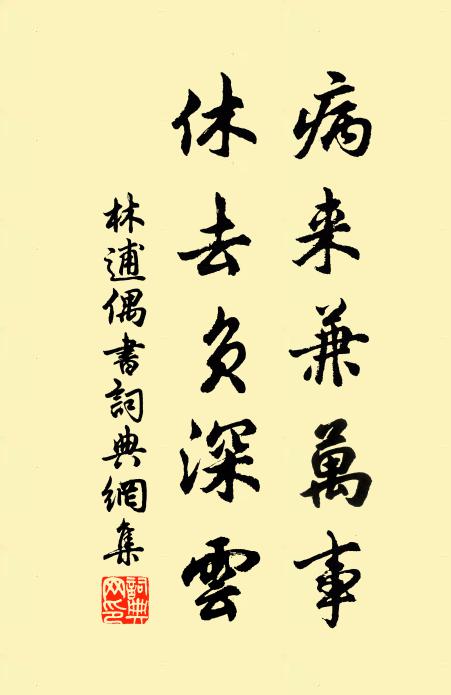 病来兼萬事
休去負深雲
林逋偶書詞典網集
詞典網印